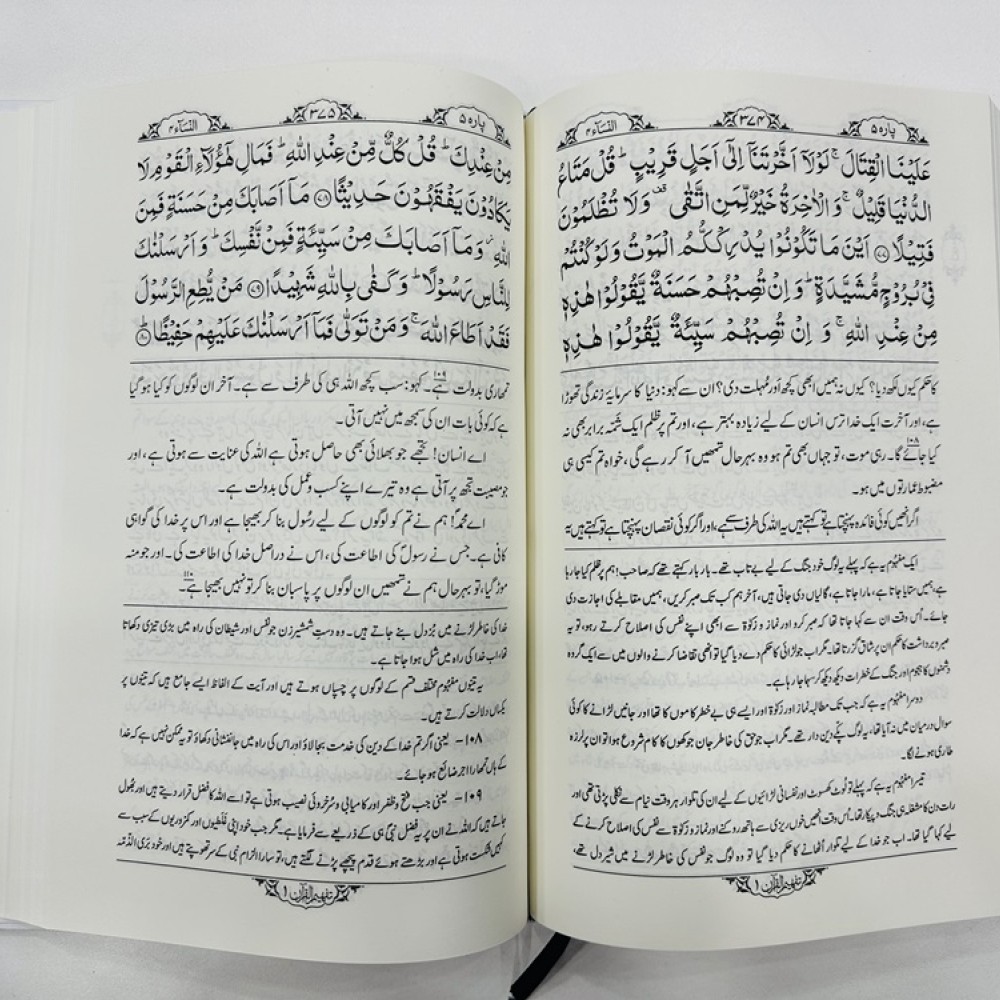 پارہ ۵
۳۷۴
النسآء ۴
عَلَيْنَا الْقِتَالَ ۚ لَوْلَاۤ اَخَّرْتَنَاۤ اِلٰۤى اَجَلٍ قَرِيْبٍ ؕ قُلْ مَتَاعُ
الدُّنْيَا قَلِيْلٌ ۚ وَ الْاٰخِرَةُ خَيْرٌ لِّمَنِ اتَّقٰى ۫ وَ لَا تُظْلَمُوْنَ
فَتِيْلًا ﴿۷۷﴾ اَيْنَ مَا تَكُوْنُوْا يُدْرِكْكُّمُ الْمَوْتُ وَ لَوْ كُنْتُمْ
فِيْ بُرُوْجٍ مُّشَيَّدَةٍ ؕ وَ اِنْ تُصِبْهُمْ حَسَنَةٌ يَّقُوْلُوْا هٰذِهٖ
مِنْ عِنْدِ اللّٰهِ ۚ وَ اِنْ تُصِبْهُمْ سَيِّئَةٌ يَّقُوْلُوْا هٰذِهٖ
کا حکم کیوں لکھ دیا؟ کیوں نہ ہمیں ابھی کچھ اور مُہلت دی؟ ان سے کہو: دنیا کا سرمایۂ زندگی تھوڑا
ہے، اور آخرت ایک خدا ترس انسان کے لیے زیادہ بہتر ہے، اور تم پر ظلم ایک شَمّہ برابر بھی نہ
کیا جائے گا۔۱۰۸ رہی موت، تو جہاں بھی تم ہو وہ بہرحال تمھیں آ کر رہے گی، خواہ تم کیسی ہی
مضبوط عمارتوں میں ہو۔
اگر انھیں کوئی فائدہ پہنچتا ہے تو کہتے ہیں یہ اللہ کی طرف سے ہے، اور اگر کوئی نقصان پہنچتا ہے تو کہتے ہیں یہ
ایک مفہوم یہ ہے کہ پہلے یہ لوگ خود جنگ کے لیے بے تاب تھے۔ بار بار کہتے تھے کہ صاحب! ہم پر ظلم کیا جا رہا
ہے، ہمیں ستایا جاتا ہے، مارا جاتا ہے، گالیاں دی جاتی ہیں، آخر ہم کب تک صبر کریں، ہمیں مقابلے کی اجازت دی
جائے۔ اُس وقت ان سے کہا جاتا تھا کہ صبر کرو اور نماز و زکوٰۃ سے ابھی اپنے نفس کی اصلاح کرتے رہو، تو یہ
صبر و برداشت کا حکم ان پر شاق گزرتا تھا۔ مگر اب جو لڑائی کا حکم دے دیا گیا تو انھی تقاضا کرنے والوں میں سے ایک گروہ
دشمنوں کا ہجوم اور جنگ کے خطرات دیکھ دیکھ کر سہما جا رہا ہے۔
دوسرا مفہوم یہ ہے کہ جب تک مطالبہ نماز اور زکوٰۃ اور ایسے ہی بے خطر کاموں کا تھا اور جانیں لڑانے کا کوئی
سوال درمیان میں نہ آیا تھا، یہ لوگ پکے دین دار تھے۔ مگر اب جو حق کی خاطر جان جوکھوں کا کام شروع ہوا تو ان پر لرزہ
طاری ہونے لگا۔
تیسرا مفہوم یہ ہے کہ پہلے تو لُوٹ کھسوٹ اور نفسانی لڑائیوں کے لیے ان کی تلوار ہر وقت نیام سے نکلی پڑتی تھی اور
رات دن کا مشغلہ ہی جنگ و پیکار تھا، اُس وقت انھیں خوں ریزی سے ہاتھ روکنے اور نماز و زکوٰۃ سے نفس کی اصلاح کرنے کے
لیے کہا گیا تھا۔ اب جو خدا کے لیے تلوار اُٹھانے کا حکم دیا گیا تو وہ لوگ جو نفس کی خاطر لڑنے میں شیر دل تھے،
تفہیم القرآن ۱
پارہ ۵
۳۷۵
النسآء ۴
مِنْ عِنْدِكَ ؕ قُلْ كُلٌّ مِّنْ عِنْدِ اللّٰهِ ؕ فَمَالِ هٰۤؤُلَآءِ الْقَوْمِ لَا
يَكَادُوْنَ يَفْقَهُوْنَ حَدِيْثًا ﴿۷۸﴾ مَاۤ اَصَابَكَ مِنْ حَسَنَةٍ فَمِنَ
اللّٰهِ ۫ وَ مَاۤ اَصَابَكَ مِنْ سَيِّئَةٍ فَمِنْ نَّفْسِكَ ؕ وَ اَرْسَلْنٰكَ
لِلنَّاسِ رَسُوْلًا ؕ وَ كَفٰى بِاللّٰهِ شَهِيْدًا ﴿۷۹﴾ مَنْ يُّطِعِ الرَّسُوْلَ
فَقَدْ اَطَاعَ اللّٰهَ ۚ وَ مَنْ تَوَلّٰى فَمَاۤ اَرْسَلْنٰكَ عَلَيْهِمْ حَفِيْظًا ﴿۸۰﴾ؕ
تمھاری بدولت ہے۔۱۰۹ کہو: سب کچھ اللہ ہی کی طرف سے ہے۔ آخر ان لوگوں کو کیا ہو گیا
ہے کہ کوئی بات ان کی سمجھ میں نہیں آتی۔
اے انسان! تجھے جو بھلائی بھی حاصل ہوتی ہے اللہ کی عنایت سے ہوتی ہے، اور
جو مصیبت تجھ پر آتی ہے وہ تیرے اپنے کسب و عمل کی بدولت ہے۔
اے محمدؐ! ہم نے تم کو لوگوں کے لیے رسُول بنا کر بھیجا ہے اور اس پر خدا کی گواہی
کافی ہے۔ جس نے رسولؐ کی اطاعت کی، اس نے دراصل خدا کی اطاعت کی۔ اور جو منہ
موڑ گیا، تو بہرحال ہم نے تمھیں ان لوگوں پر پاسبان بنا کر تو نہیں بھیجا ہے۔۱۱۰
خدا کی خاطر لڑنے میں بُزدل بنے جاتے ہیں۔ وہ دستِ شمشیر زن جو نفس اور شیطان کی راہ میں بڑی تیزی دکھاتا
تھا، اب خدا کی راہ میں شل ہوا جاتا ہے۔
یہ تینوں مفہوم مختلف قسم کے لوگوں پر چسپاں ہوتے ہیں اور آیت کے الفاظ ایسے جامع ہیں کہ تینوں پر
یکساں دلالت کرتے ہیں۔
۱۰۸- یعنی اگر تم خدا کے دین کی خدمت بجا لاؤ اور اس کی راہ میں جانفشانی دکھاؤ تو یہ ممکن نہیں ہے کہ خدا
کے ہاں تمھارا اجر ضائع ہو جائے۔
۱۰۹- یعنی جب فتح و ظفر اور کامیابی و سُرخروئی نصیب ہوتی ہے تو اسے اللہ کا فضل قرار دیتے ہیں اور بھُول
جاتے ہیں کہ اللہ نے ان پر یہ فضل نبیؐ ہی کے ذریعے سے فرمایا ہے۔ مگر جب خود اپنی غلطیوں اور کمزوریوں کے سبب سے
کہیں شکست ہوتی ہے اور بڑھتے ہوئے قدم پیچھے پڑنے لگتے ہیں، تو سارا الزام نبی کے سر تھوپتے ہیں اور خود بَری الذّمّہ
تفہیم القرآن ۱